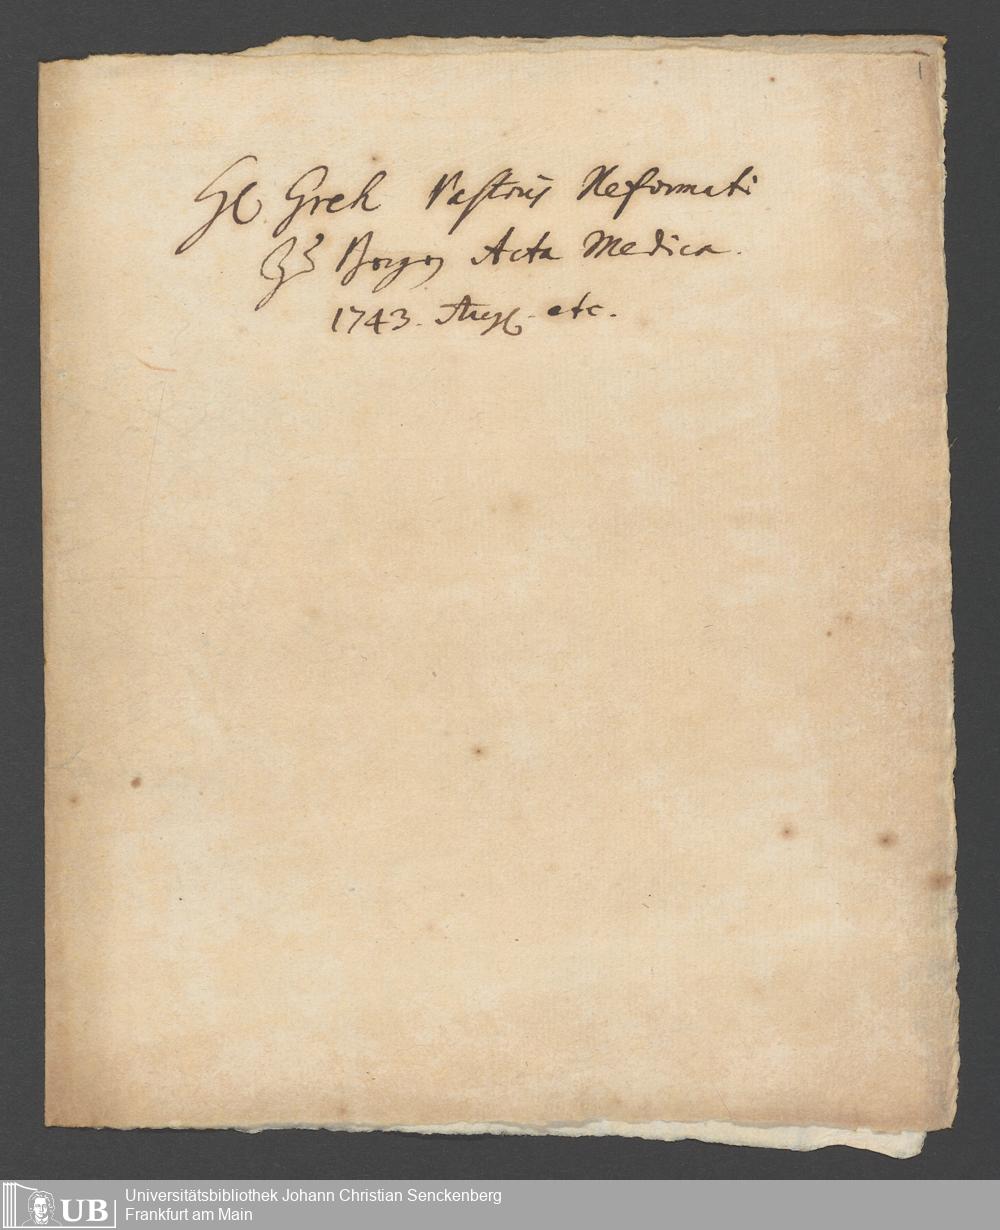 1
H. Greh Pastoris Reformati
Zu Bergen Acta Medica.
1743. Aug. etc.
UB
Universitätsbibliothek Johann Christian Senckenberg
Frankfurt am Main